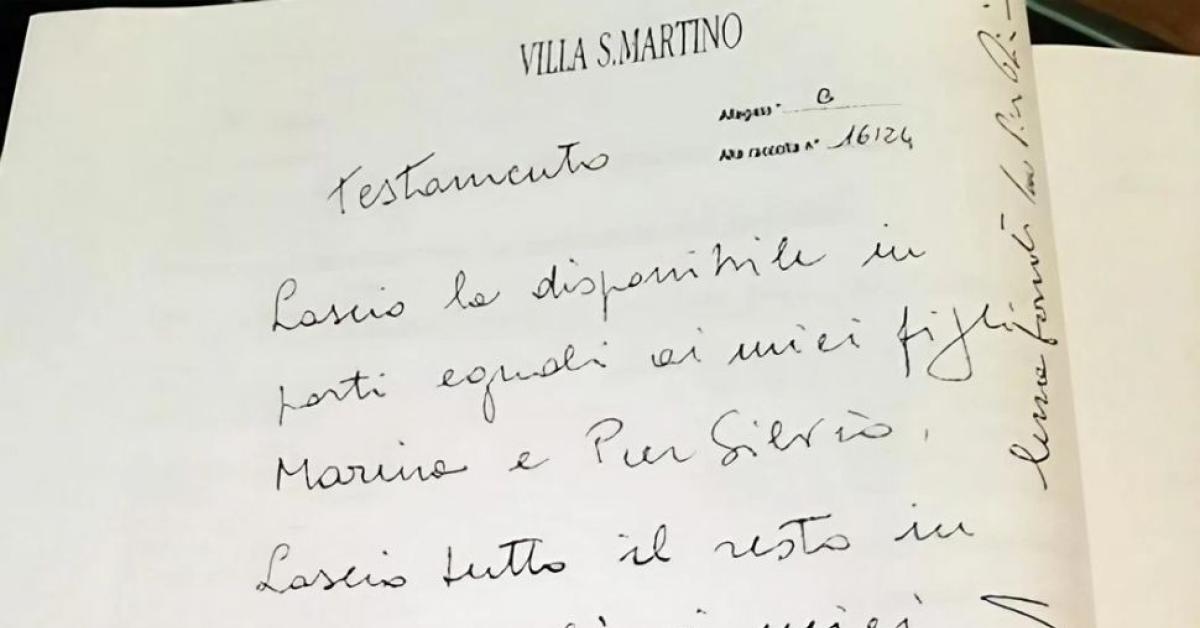 VILLA S.MARTINO
Allegato " B
Alla raccolta N° 16124
Testamento
Lascio la disponibile in
parti eguali ai miei figli
Marina e Pier Silvio.
Lascio tutto il resto in
miei